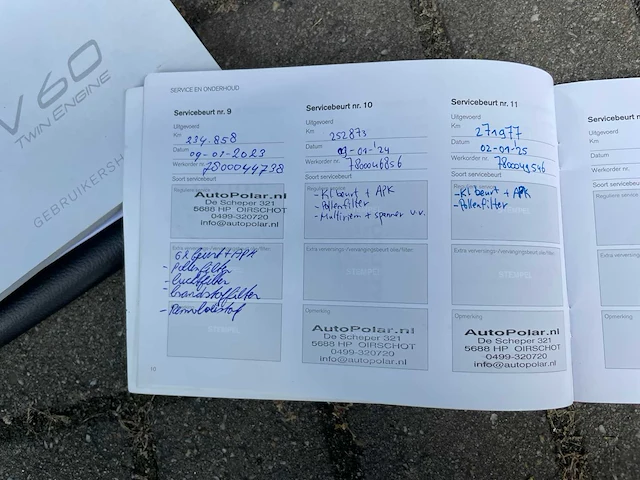 V60
TWIN ENGINE
GEBRUIKERSH
SERVICE EN ONDERHOUD
Servicebeurt nr. 9
Uitgevoerd
Km 234.858
Datum 09-01-2023
Werkorder nr. 7800044738
Soort servicebeurt
AutoPolar.nl
De Scheper 321
5688 HP OIRSCHOT
0499-320720
info@autopolar.nl
GR beurt + APK
- Pollenfilter
- Luchtfilter
- brandstoffilter
- Remvloeistof
10
Servicebeurt nr. 10
Uitgevoerd
Km 252873
Datum 09-01-'24
Werkorder nr. 7800046856
Soort servicebeurt
- Kl beurt + APK
- Pollenfilter
- Multiriem + spanner v.v.
Extra verversings-/vervangingsbeurt olie/filter
STEMPEL
Opmerking
AutoPolar.nl
De Scheper 321
5688 HP OIRSCHOT
0499-320720
info@autopolar.nl
Servicebeurt nr. 11
Uitgevoerd
Km 271977
Datum 02-01-'25
Werkorder nr. 7800049546
Soort servicebeurt
- Kl beurt + APK
- Pollenfilter
Extra verversings-/vervangingsbeurt olie/filter
STEMPEL
Opmerking
AutoPolar.nl
De Scheper 321
5688 HP OIRSCHOT
0499-320720
info@autopolar.nl
Servicebeurt n
Uitgevoerd
Km
Datum
Werkorder nr.
Soort servicebeurt
Reguliere service
Extra verversings-/ver
Opmerking